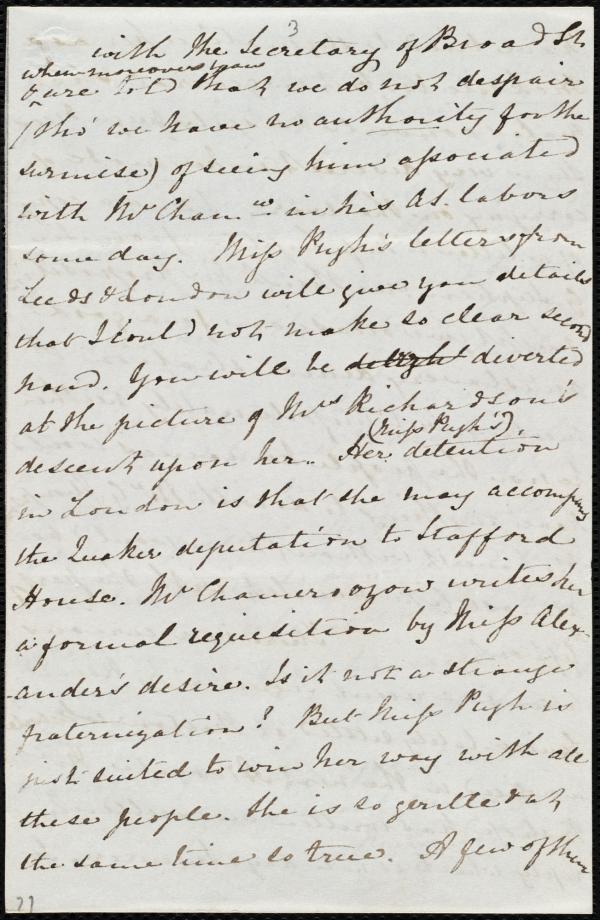 3
with the Secretary of Broad St.
when moreover you
& are told that we do not despair
(tho' we have no authority for the
surmise) of seeing him associated
with Mr Cham.ow in his AS. labors
some day. Miss Pugh's letters from
Leeds & London will give you details
that I could not make so clear second
hand. You will be delight diverted
at the picture of Mrs Richardson's
descent upon her. Her detention
(Miss Pugh's),
in London is that she may accompany
the Quaker deputation to Stafford
House. Mr Chamerovzow writes her
a formal requisition by Miss Alex-
-ander's desire. Is it not a strange
fraternization? But Miss Pugh is
just suited to win her way with all
these people. She is so gentle & at
the same time so true. A few of them